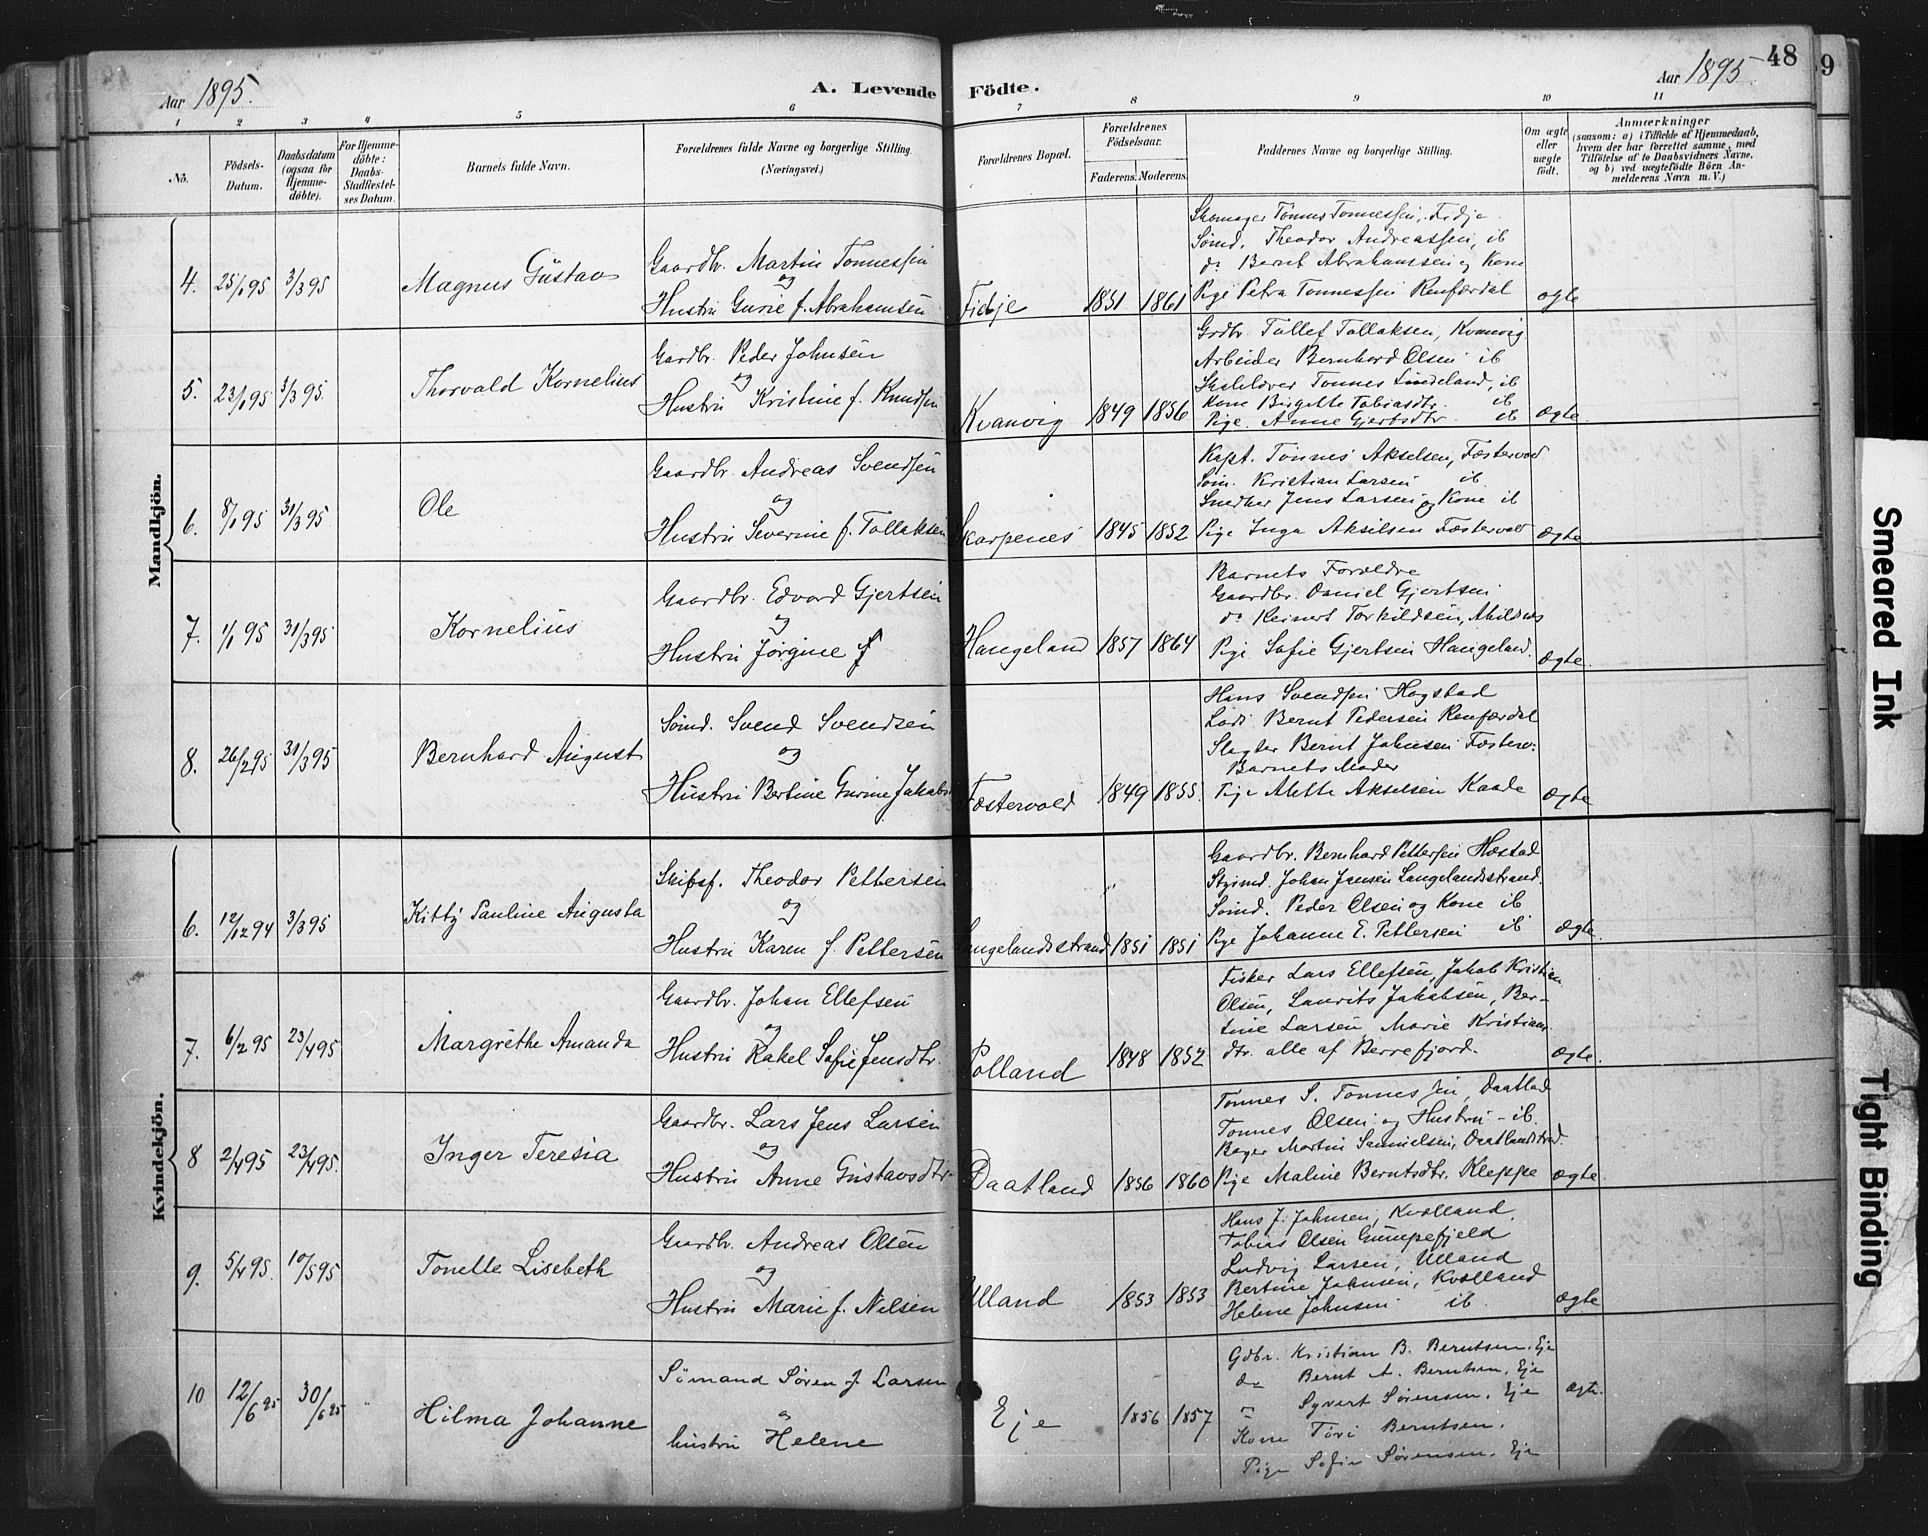 Aar 1895.
A. Levende Födte.
Aar 1895
48
9
1 2 3 4 5 6 7 8 9 10 11
No.
Födsels-Datum.
Daabsdatum (ogsaa for Hjemme-döbte).
For Hjemme-döbte: Daabs-Stadfæstel-ses Datum.
Barnets fulde Navn.
Forældrenes fulde Navne og borgerlige Stilling. (Næringsvei.)
Forældrenes Bopæl.
Forældrenes Födselsaar.
Faderens. Moderens.
Faddernes Navne og borgerlige Stilling.
Om ægte eller uægte födt.
Anmærkninger
(saasom: a) i Tilfælde af Hjemmedaab, hvem der har forrettet samme, med Tilföielse af to Daabsvidners Navne, og b) ved uægtefödte Börn Anmelderens Navn m. V.)
Mandkjön.
4. 25/1 95 3/3 95 Magnus Gustav
Gaardbr. Martin Tonnessen
og
Hustru Gurie f. Abrahamsen
Fidje 1851 1861
Skomager Tönnes Tonnessen, Fidje
Sömd. Theodor Andreassen, ib
do Bernt Abrahamsen og Kone
Pige Petra Tonnessen Renfærdal ægte
5. 23/1 95 3/3 95. Thorvald Kornelius
Gardbr. Peder Johnsen
og
Hustru Kristine f. Knudsen
Kvanvig 1849 1856
Grdbr. Tallef Tallaksen, Kvanvig
Arbeider Bernhard Olsen ib
Tonnes Lindeland, ib
Kone Birgitte Tobiasdtr. ib
Pige. Anne Gjertsdtr ib ægte.
6. 8/1 95 31/3 95 Ole
Gaardbr. Andreas Svendsen
og
Hustru Severine f. Tallaksen
Skarpenes 1845 1852
Kapt. Tönnes Akselsen, Fæstervold
Söm. Kristian Larsen ib.
Snedker Jens Larsen og Kone ib
Pige Inga Akselsen Fæstervold ægte
7. 1/1 95 31/3 95 Kornelius
Gaardbr. Edvard Gjertsen
og
Hustru Jörgine f
Haugeland 1857 1864
Barnets Forældre
Gaardbr. Daniel Gjertsen
do Reinert Torkildsen, Abildsnes
Pige Sofie Gjertsen Haugeland. ægte.
8. 26/2 95 31/3 95 Bernhard August
Sömd. Svend Svendsen
og
Hustru Bertine Gurine Jakobs
Fæstervold 1849 1855.
Hans Svendsen Hogstad
Lods Bernt Pedersen Renfærdal
Slagter Bernt Johnsen Fæsterv.
Barnets Moder
Pige Mette Akselsen Kaade ægte
Kvindekjön.
6. 12/12 94 3/3 95 Kitty Pauline Augusta
Skibsf. Theodor Pettersen
og
Hustru Karen f. Pettersen
Langelandsstrand 1851 1851
Gaardbr. Bernhard Pettersen Hæstad
Styrmd. Johan Jensen Langelandsstrand.
Sömd. Peder Olsen og Kone ib
Pige Johanne E. Pettersen ib ægte.
7. 6/2 95 23/4 95 Margrethe Amanda
Gaardbr. Johan Ellefsen
og
Hustru Rakel Sofie Jensdtr.
Polland 1848 1852
Fisker Lars Ellefsen, Jakob Kristian
Olsen, Laurits Jakobsen, Ber-
tine Larsen Marie Kristians-
dtr. alle af Berrefjord. ægte.
8 2/4 95 23/4 95. Inger Teresia
Gaardbr. Lars Jens Larsen
og
Hustru Anne Gustavsdtr.
Daatland 1856 1860
Tönnes S. Tonnessen, Daatland
Tonnes Olsen og Hustru - ib.
Bager Martin Samuelsen, Daatlandstrd.
Pige Maline Berntsdtr. Kleppe ægte.
9. 5/4 95. 10/5 95 Tonette Lisebeth
Gaardbr. Andreas Olsen
og
Hustru Marie f. Nilsen
Ulland 1853 1853
Hans J. Johnsen, Kvolland.
Tobias Olsen Gumpefjeld
Ludvig Larsen, Ulland
Bertine Johnsen, Kvolland
Helene Johnsen ib. ægte
10 12/6 95 30/6 95 Hilma Johanne
Sömand Sören J. Larsen
og
hustru Helene
Eje 1856 1857
Gdbr. Kristian B. Berntsen. Eje
do Bernt A. Berntsen. Eje
" Syvert Sörensen. Eje
Kone Tövi Berntsen.
Pige Sofie Sörensen. Eje ægte.
Smeared Ink
Tight Binding